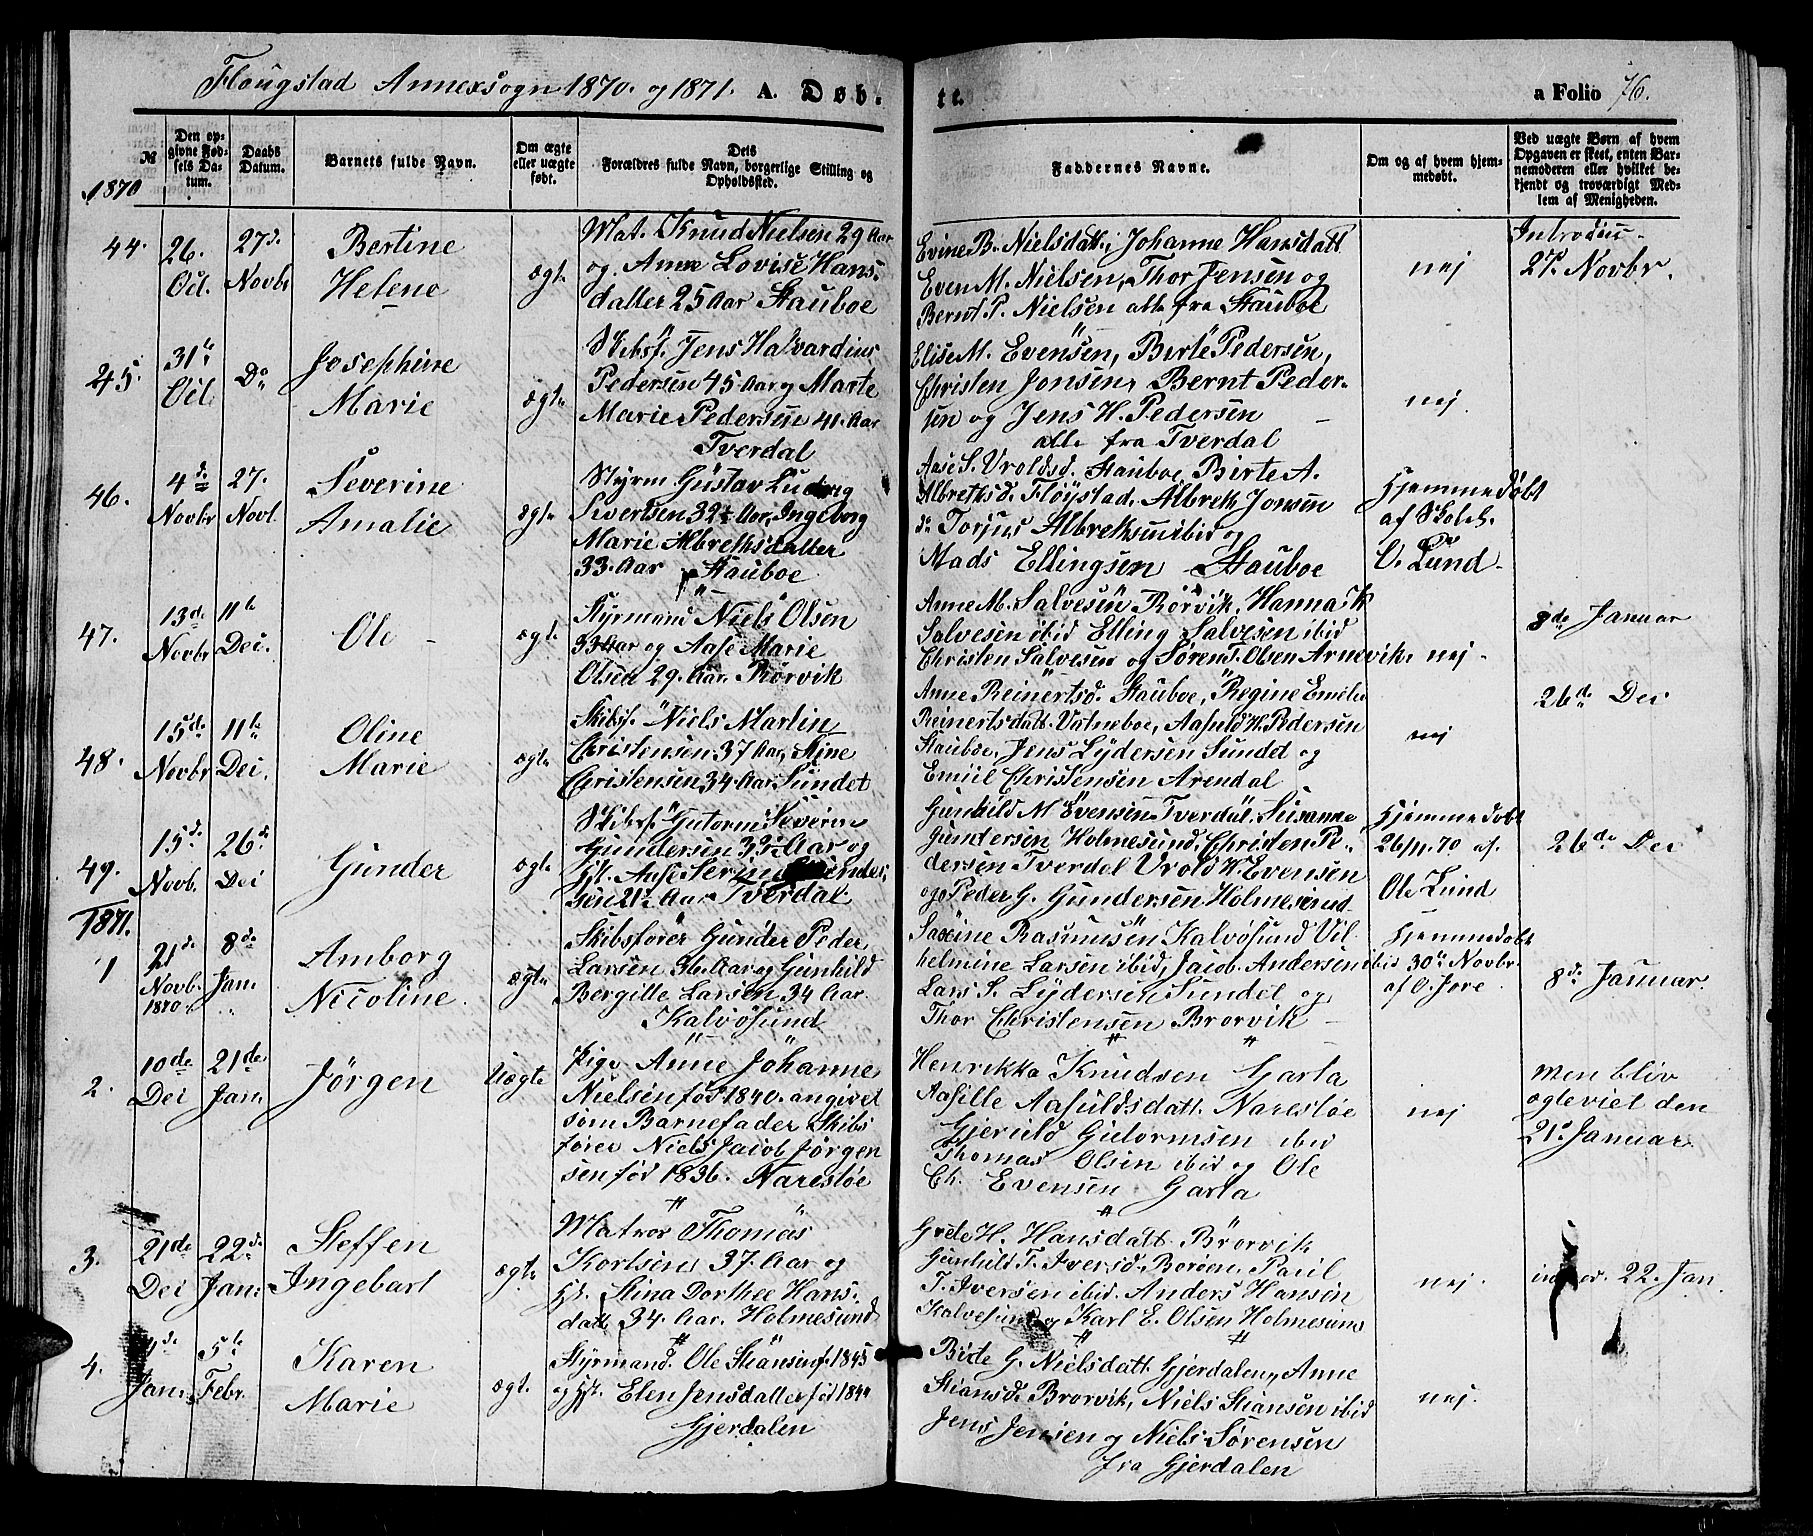 Flougstad Annexsogn 1870. og 1871. A. Døb- te. a Folio 76.
№
Den op-
givne Fød-
sels Da-
tum.
Daabs
Datum.
Barnets fulde Navn.
Om ægte
eller uægte
født.
Dets
Forældres fulde Navn, borgerlige Stilling og
Opholdssted.
Faddernes Navne.
Om og af hvem hjem-
medøbt.
Ved uægte Børn af hvem
Opgaven er skeet, enten Bar-
nemoderen eller hvilket be-
kjendt og troværdigt Med-
lem af Menigheden.
1870
44.
26.
Oct.
27de
Novbr
Bertine
Helene
ægte
Mat. Knud Nielsen 29 Aar
og Anne Lovise Hans-
datter 25 Aar Stauboe
Evine B. Nielsdatt, Johanne Hansdatt
Even M. Nielsen, Thor Jensen og
Bernt P. Nielsen alle fra Stauboe
nej
Introduc-
27. Novbr.
45.
31te
Oct
Do
Josephine
Marie
ægte
Skibsf. Jens Halvardius
Pedersen 45 Aar og Marte
Marie Pedersen 41. Aar
Tverdal
Elise M. Evensen, Birte Pedersen,
Christen Jonsen, Bernt Peder-
sen og Jens H. Pedersen
alle fra Tverdal
nej.
46.
4de
Novbr
27.
Novb.
Severine
Amalie
ægte
Styrm Gustav Ludvig
Sivertsen 32½ Aar, Ingeborg
Marie Albrethsdatter
33. Aar Stauboe
Aase S. Vroldsd. Stauboe, Birte A.
Albrethsd. Fløystad. Albreth Jonsen
do Torjus Albrethsen ibid og
Mads Ellingsen Stauboe
Hjemmedøbt
af Skoleh.
O. Lund.
47.
13de
Novbr
11te
Dec.
Ole
ægte
Styrmand Niels Olsen
33 Aar og Aase Marie
Olsen 29. Aar. Rørvik
Anne M. Salvesen Rørvik, Hanna K
Salvesen ibid Elling Salvesen ibid
Christen Salvesen og Søren T. Olsen Arnevik.
nej.
8de Januar
48.
15de
Novbr
11te
Dec.
Oline
Marie
ægte
Skibsf. Niels Martin
Christensen 37 Aar, Stine
Christensen 34. Aar Sundet
Anne Reinertsd. Stauboe, Regine Emelie
Reinertsdatt. Vatneboe, Aasuld H. Pedersen
Stauboe, Jens Lydersen Sundet og
Emiil Christensen Arendal
nej
26de Dec
49.
15de
Novb.
26de
Dec
Gunder
ægte
Skibsf. Gutorm Severin
Gundersen 33½ Aar og
Hst. Aase Serine
sen 21½ Aar Tverdal.
Gunhild M Evensen Tverdal, Susanne
Gundersen Holmesund, Christen Pe-
dersen Tverdal Vrold W. Evensen
og Peder G. Gundersen Holmesund
Hjemmedøbt
26/11.70 af.
Ole Lund
26de Dec
1871.
1
21de
Novb.
1870.
8de
Jan.
Amborg
Nicoline
ægte
Skibsfører Gunder Peder
Larsen 36. Aar og Gunhild
Bergitte Larsen 34 Aar.
Kalvøsund
Rasmusen Kalvøsund Vil-
helmine Larsen ibid, Jacob. Andersen ibid
Lars S. Lydersen Sundet og
Thor Christensen Brorvik
Hjemmedøbt
30te Novbr.
af
8de Januar
2.
10de
Dec
21de
Jan.
Jörgen
Uægte
Pige Anne Johanne
Nielsen født 1840. angivet
som Barnefader Skibs
fører Niels Jacob Jørgen
sen født 1836. Narestøe
Henrikka Knudsen Garta
Aasille Aasuldsdatt. Narestøe
Gjeruld Gutormsen ibid
Thomas Olsen ibid og Ole
Ch. Evensen Garta
nej
Men bliv
ægteviet den
21de Januar
3.
21de
Dec
22de
Jan.
Steffen
Ingebart
ægte
Matros Thomas
Kortsen 37. Aar og
Hst. Stina Dorthee Hans-
datt 34. Aar. Holmesund
Grete H. Hansdatt Brörvik
Gunhild T. Iversd. Borøen, Paul
T. Iversen ibid. Anders Hansen
Kalvesund og Karl E. Olsen Holmesund
nej.
22. Jan
4.
Jan.
5te
Febr.
Karen
Marie
ægt.
Styrmand. Ole Stiansen f. 1845
og Hst. Elen Jensdatter født 1844
Gjerdalen
Birte G. Nielsdatt. Gjerdalen, Anne
Stiansd. Brorvik, Niels Stiansen ibid
Jens Jensen og Niels Sørensen
fra Gjerdalen
nej.